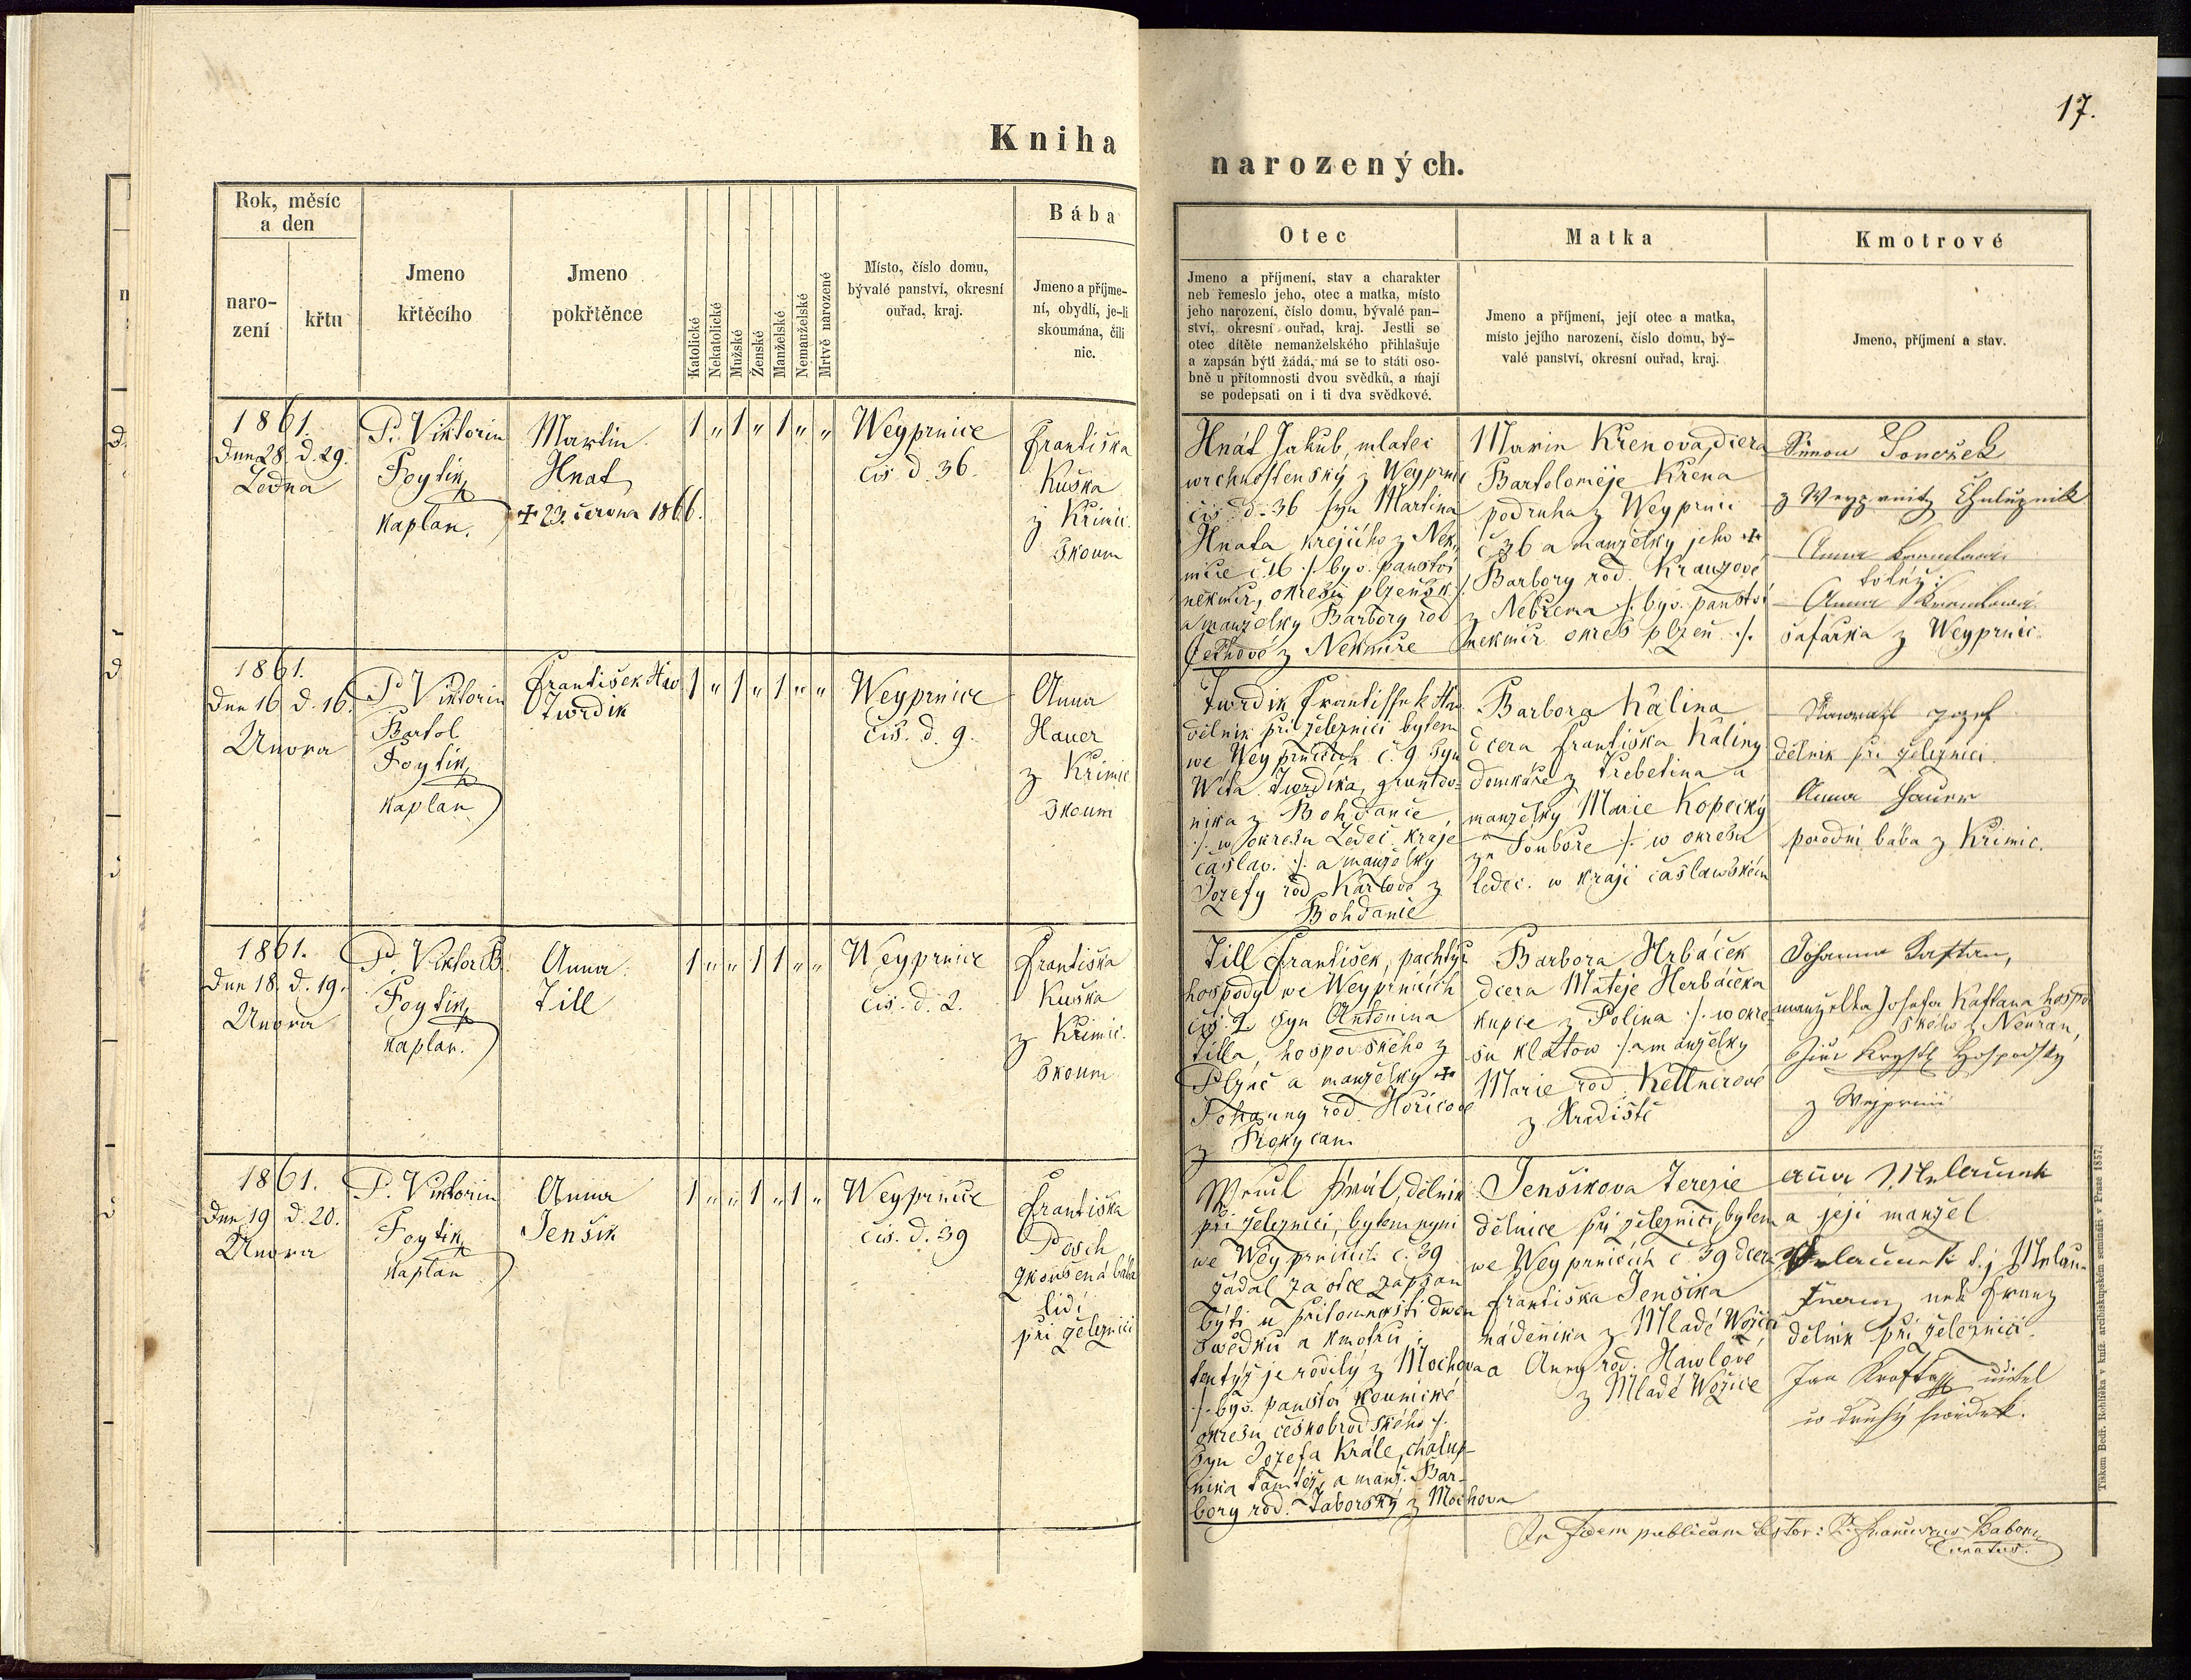 17.
Kniha
narozených.
Rok, měsíc
a den
naro-
zení
křtu
Jmeno
křtěcího
Jmeno
pokřtěnce
Katolické
Nekatolické
Mužské
Ženské
Manželské
Nemanželské
Mrtvě narozené
Místo, číslo domu,
bývalé panství, okresní
ouřad, kraj.
Bába
Jmeno a příjme-
ní, obydlí, je-li
skoumána, čili
nic.
Otec
Jmeno a příjmení, stav a charakter
neb řemeslo jeho, otec a matka, místo
jeho narození, číslo domu, bývalé pan-
ství, okresní ouřad, kraj. Jestli se
otec dítěte nemanželského přihlašuje
a zapsán býti žádá, má se to státi oso-
bně u přítomnosti dvou svědků, a mají
se podepsati on i ti dva svědkové.
Matka
Jmeno a příjmení, její otec a matka,
místo jejího narození, číslo domu, bý-
valé panství, okresní ouřad, kraj.
Kmotrové
Jmeno, příjmení a stav.
1861.
Dne 28. d. 29.
Ledna
P. Viktorin
Foytik
Kaplan.
Martin
Hnat
+ 23. června 1866.
1 " 1 " 1 " "
Weyprnice
čis. d. 36.
Františka
Kuška
z Křimic
Skoum
Hnát Jakub, mlatec
wrchnostenský z Weyprnic
čis. d. 36 syn Martina
Hnata, krejčího z Nek-
míře č. 16 /. býv. panství
nekmíř, okresu plzeňsk. /.
a manželky Barbory rod
z Nekmíře
Marie Křenova, dcera
Bartoloměje Křena
podruha z Weyprnic
č 36 a manželky jeho +
Barbory rod. Krauzové
z Nebřema /. býv. panství
nekmíř okres plzeň /.
Simon
z Weyprnitz Chalupnik
Anna
totéž:
Anna
šafářka z Weyprnic.
1861.
Dne 16. d. 16.
Unora
P. Viktorin
Bartol
Foytik
Kaplan
František
Twrdik
1 " 1 " 1 " "
Weyprnice
čis. d. 9.
Anna
Hauer
z Křimic
Skoum
Twrdik Frantissek
dělnik při železnici bytem
we Weyprnicích č. 9 syn
Wíta Twrdíka, gruntov-
nika z Bohdanče
/. w okresu Ledeč kraje
čáslav. /. a manželky
Jozefy rod Karlové z
Bohdanče
Barbora Kalina
dcera Františka Kaliny
domkáře z Třebětina a
manželky Marie Kopecký
ze Souboře /. w okresu
ledeč. w kraji časlawském
Nawratil Jozef
dělnik při železnici.
Anna Hauer
porodní bába z Křimic.
1861.
Dne 18. d. 19.
Unora
P. Viktor B.
Foytik
Kaplan.
Anna
Till
1 " " 1 1 " "
Weyprnice
čis. d. 2.
Františka
Kuška
z Křimic.
Skoum
Till František, pachtýř
hospody we Weyprnicích
čis. 2. syn Antonina
Tilla, hospodského z
Plzně a manželky +
Johanny rod Hořicové
z Rokycan
Barbora Hrbáček
dcera Matěje Herbáčka
kupce z Polína /. w okre-
su klatow /. a manželky
Marie rod. Kettnerové
z Hradiště
Johanna Kaftan,
manželka Josefa Kaftana hospo-
dského z Neuřan,
Krystl Hospodsky
z Wejprnic
1861.
Dne 19. d. 20.
Unora
P. Viktorin
Foytik
Kaplan
Anna
Jenšik
1 " " 1 " 1 "
Weyprnice
čis. d. 39
Františka
Posch
zkoušená bába
lidí
při železnici
Král, dělnik
při železnici, bytem nyni
we Weyprnicích č. 39
žádal za otce zapsan
býti u přítomnosti dwou
swědků a kmotrů;
tentýž je rodilý z Mochova
/. býv. panství kounické
okresu českobrodského /.
syn Jozefa Krále, chalup-
nika tamtéž, a manž. Bar-
bory rod. Taborský z Mochova
Jenšikova Terezie
dělnice při železnici, bytem
we Weyprnicích č 39 dcera
Františka Jenšika
nádeníka z Mladé Wožice
a Anny rod. Hawlové
z Mladé Wožice
a její manžel
neb Franz
dělnik při železnici.
Jan Krofta učitel
co druhý swědek.
In fidem publicam testor: P. Franciscus
Curatus.
Tiskem Bedř. Rohlíčka v kníž. arcibiskupském semináři v Praze 1857.